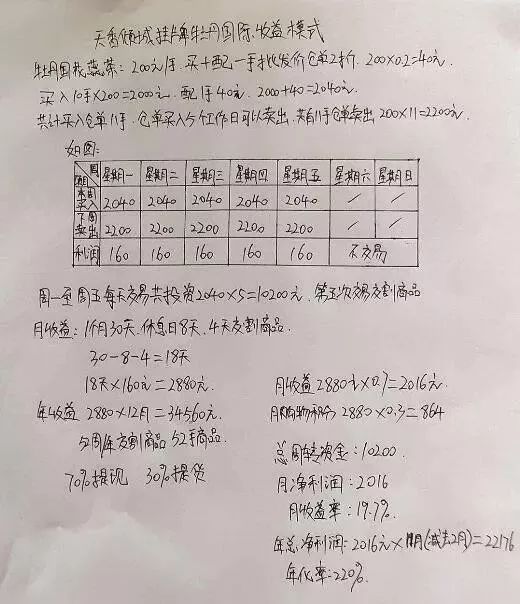 天香倾城挂牌牡丹国际.收益模式
牡丹国花燕茶: 200元/手. 买十配一手批发价仓单2折. 200×0.2=40元.
买入10手×200=2000元. 配1手40元. 2000+40=2040元.
共计买入仓单11手. 仓单买入5个工作日可以卖出. 共有11手仓单卖出200×11=2200元.
如图:
项目 周 星期一 星期二 星期三 星期四 星期五 星期六 星期日
本周买入 2040 2040 2040 2040 2040 / /
下周卖出 2200 2200 2200 2200 2200 / /
利润 160 160 160 160 160 不交易
周一至周五每天交易共投资2040×5=10200元. 第五次交易交割商品
月收益: 1个月30天. 休息日8天. 4天交割商品.
30-8-4=18天
18天×160元=2880元.
年收益 2880×12月=34560元.
52周年交割商品 52手商品.
70%提现 30%提货
月收益2880元×0.7=2016元.
月购物积分2880×0.3=864
总周转资金: 10200.
月净利润: 2016
月收益率: 19.7%.
年总净利润: 2016元×11月(减去2月)=22176
年化率: 220%.